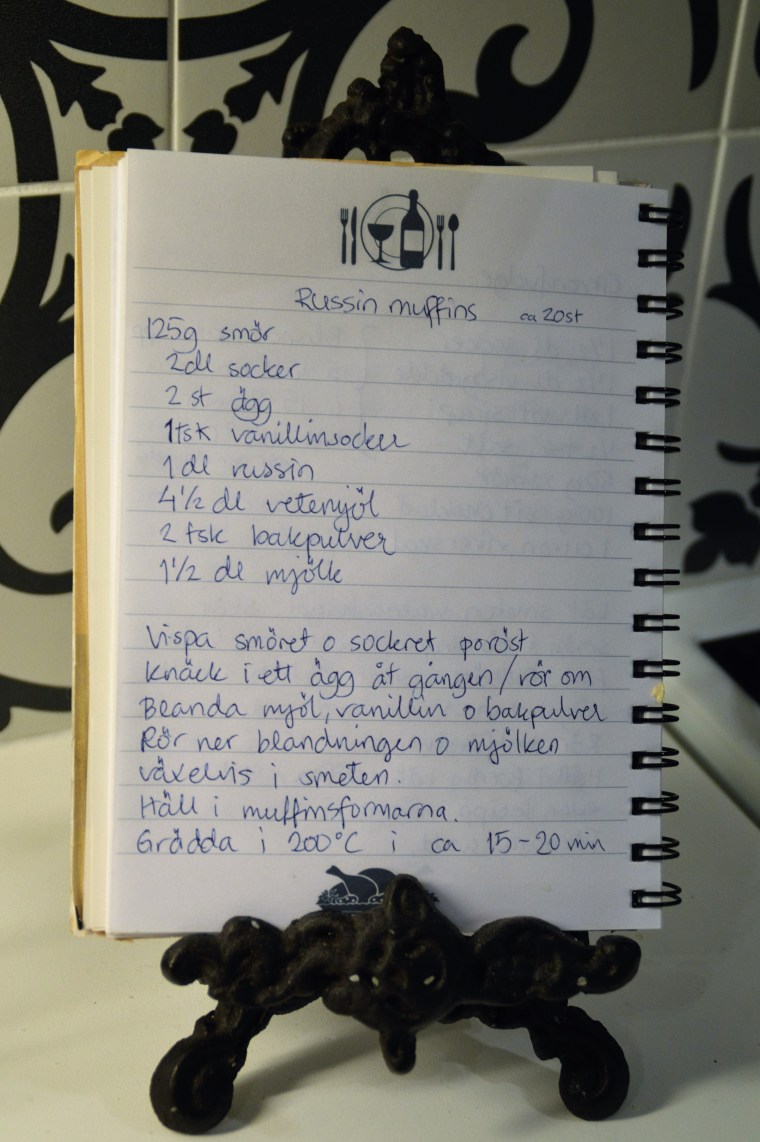 Russin muffins ca 20st
125g smör
2dl socker
2 st ägg
1tsk vanillinsocker
1 dl russin
4 1/2 dl vetemjöl
2 tsk bakpulver
1 1/2 dl mjölk
Vispa smöret o sockret poröst
Knäck i ett ägg åt gången/rör om
Blanda mjöl, vanillin o bakpulver
Rör ner blandningen o mjölken
växelvis i smeten.
Häll i muffinsformarna.
Grädda i 200°C i ca 15-20 min